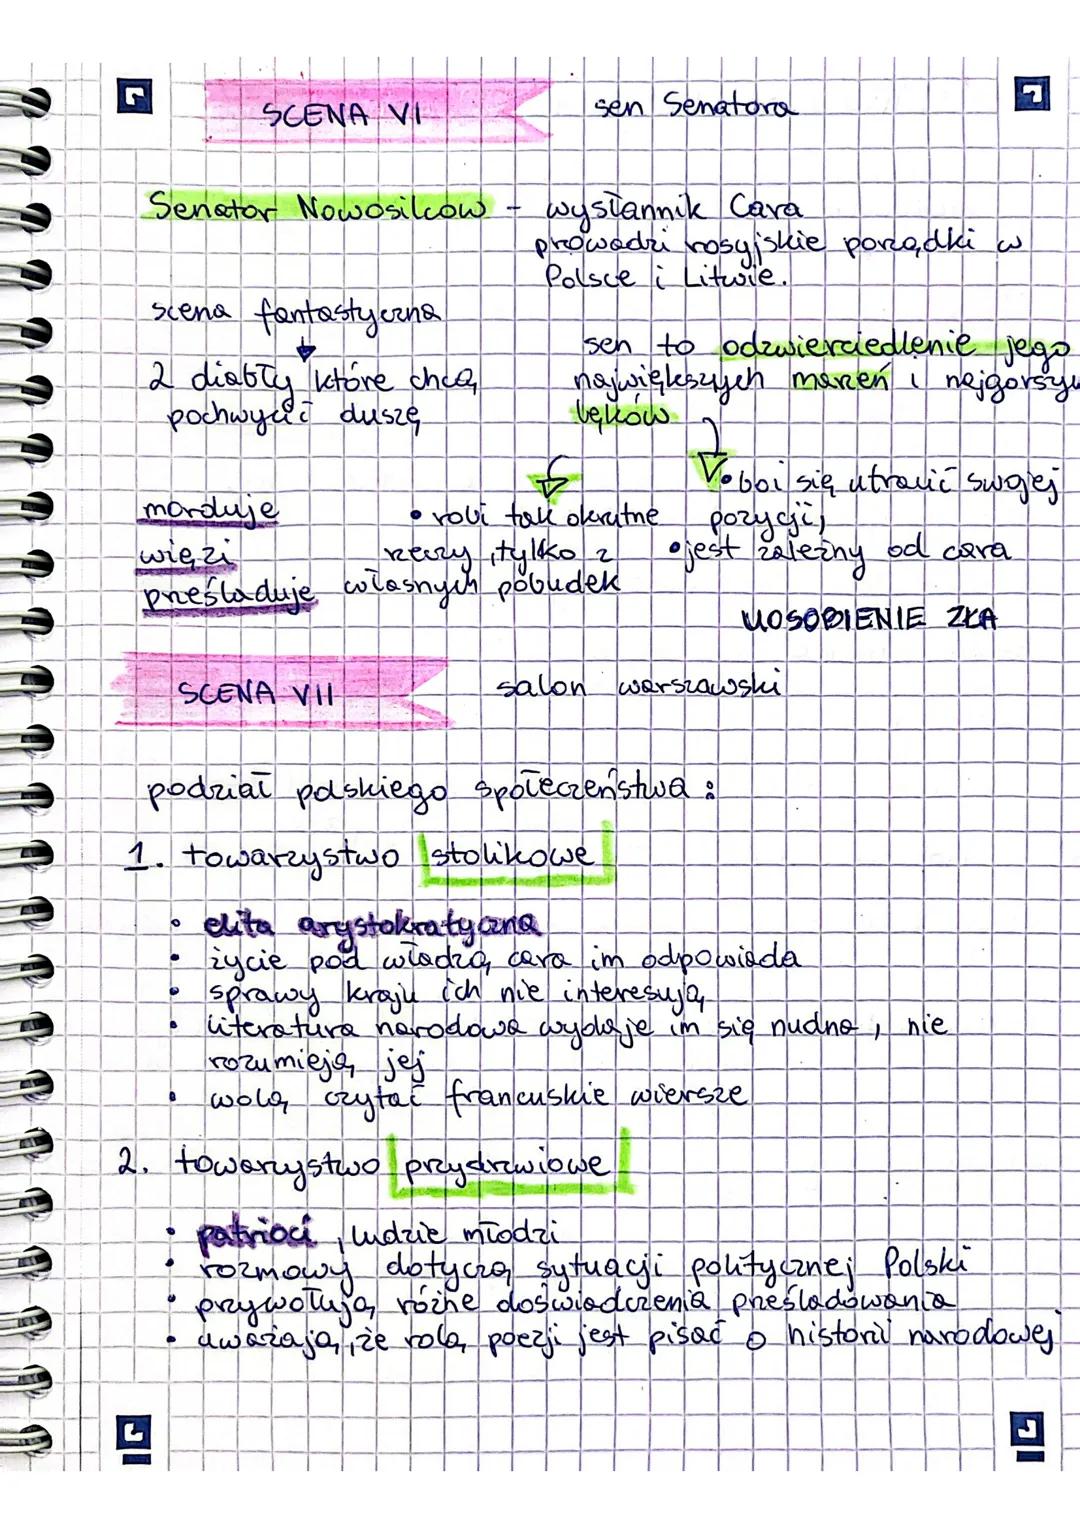 SCENA VI
sen Senatora
Senator Nowosilcow - wysłannik Cara
prowadzi rosyjskie porządki w
Polsce i Litwie.
scena fantastyczna
2 diabły które chcą
pochwycić duszę
sen to odzwierciedlenie jego
największych marzeń i najgorszy
lęków
• boi się utracić swojej
pozycji,
• jest zależny od cara
• robi tak okrutne
rzeczy, tylko z
własnych pobudek
morduje
więzi
prześladuje
UOSOBIENIE ZŁA
SCENA VII
salon warszawski
podział polskiego społeczeństwa:
1. towarzystwo stolikowe
• elita arystokratyczna
• życie pod władzą cara im odpowiada
• sprawy kraju ich nie interesują
• literatura narodowa wydaje im się nudna, nie
rozumieją jej
• wolą czytać francuskie wiersze
2. towarzystwo przydrzwiowe
• patrioci, ludzie młodzi
• rozmowy dotyczą sytuacji politycznej Polski
• przywołują różne doświadczenia prześladowania
• uważają, że rolą poezji jest pisać o historii narodowej